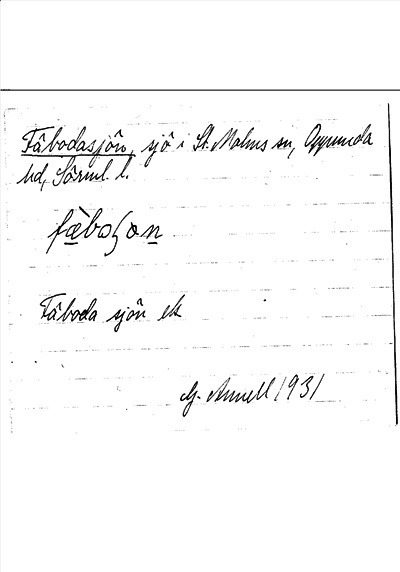 Fäbodasjön, sjö i St. Malms sn, Oppunda
hd, Sörml. l.
fæ̀boʃon
Fäboda sjön ek
G. Annell 1931